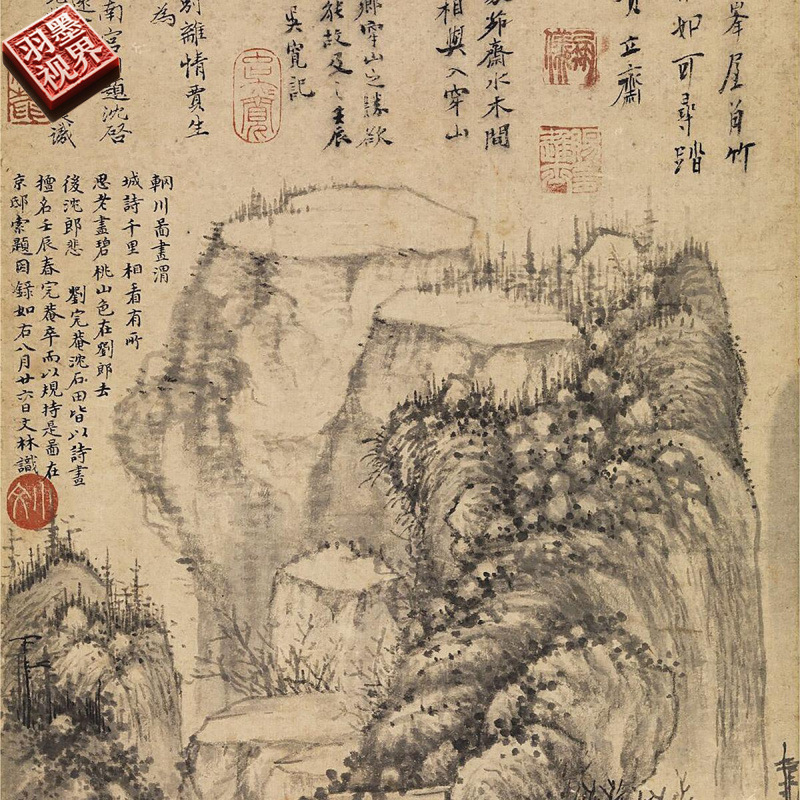 羽墨
视界
峯屋角竹
如可尋踏
立齋
茆齋水木間
相與入穿山
鄉穿山之勝欲
能故及之壬辰
吳寬記
別離情賈生
為
南宮
題沈啓
識
輞川啚畫渭
城詩千里相看有所
思老畫碧桃山色在劉郎去
後沈郎悲 劉完菴沈石田皆以詩畫
擅名壬辰春完菴卒而以規持是啚在
京邸索題因錄如右八月廿六日文林識